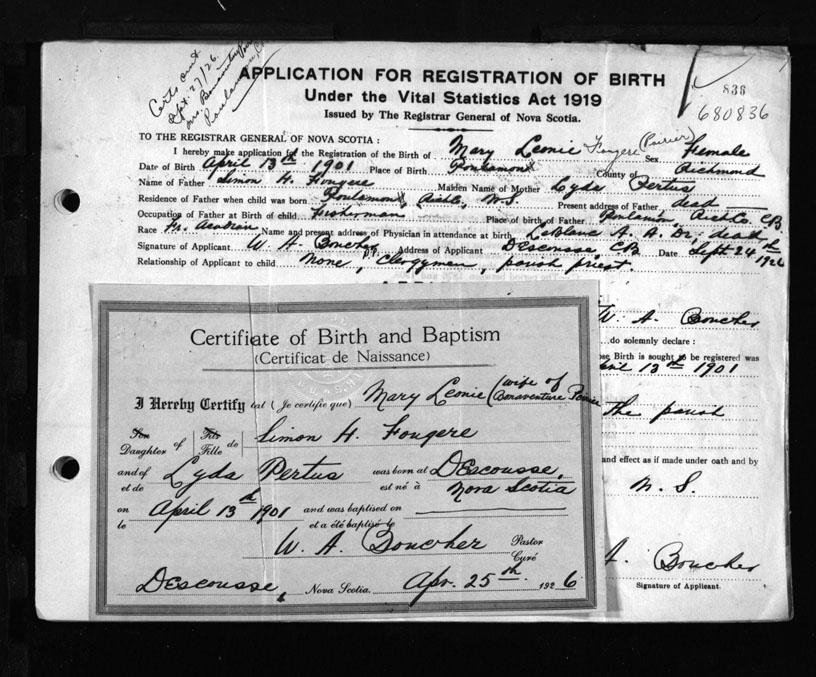 Certs sent
Sept. 27/26
Mrs. Bonaventure
Poulamon, C.B.
APPLICATION FOR REGISTRATION OF BIRTH
Under the Vital Statistics Act 1919
Issued by The Registrar General of Nova Scotia.
836
680836
TO THE REGISTRAR GENERAL OF NOVA SCOTIA :
I hereby make application for the Registration of the Birth of Mary Leonie Fougere (Poirier) Sex Female
Date of Birth April 13th 1901 Place of Birth Poulamon County of Richmond
Name of Father Simon H. Fougere Maiden Name of Mother Lyda Pertus
Residence of Father when child was born Poulamon, Richd., N.S. Present address of Father dead
Occupation of Father at Birth of child Fisherman Place of birth of Father Poulamon, Richd. C.B.
Race Fr. Acadian Name and present address of Physician in attendance at birth LeBlanc A. A. Dr., dead
Signature of Applicant W. A. Boucher p.p. Address of Applicant Descousse, C.B. Date Sept. 24th 1926
Relationship of Applicant to child None, Clergyman, parish priest.
W. A. Boucher
...do solemnly declare :
Birth is sought to be registered was
April 13th 1901
the parish
and effect as if made under oath and by
N. S.
A. Boucher
Signature of Applicant.
Certificate of Birth and Baptism
(Certificat de Naissance)
I Hereby Certify tat (Je certifie que) Mary Leonie (wife of Bonaventure Poirier
Son Fils
Daughter of Fille de Simon H. Fougere
and of Lyda Pertus was born at DEscousse,
et de est né à Nova Scotia
on April 13th 1901 and was baptised on
le et a été baptisé le
W. A. Boucher Pastor
Curé
DEscousse, Nova Scotia. Apr. 25th 1926